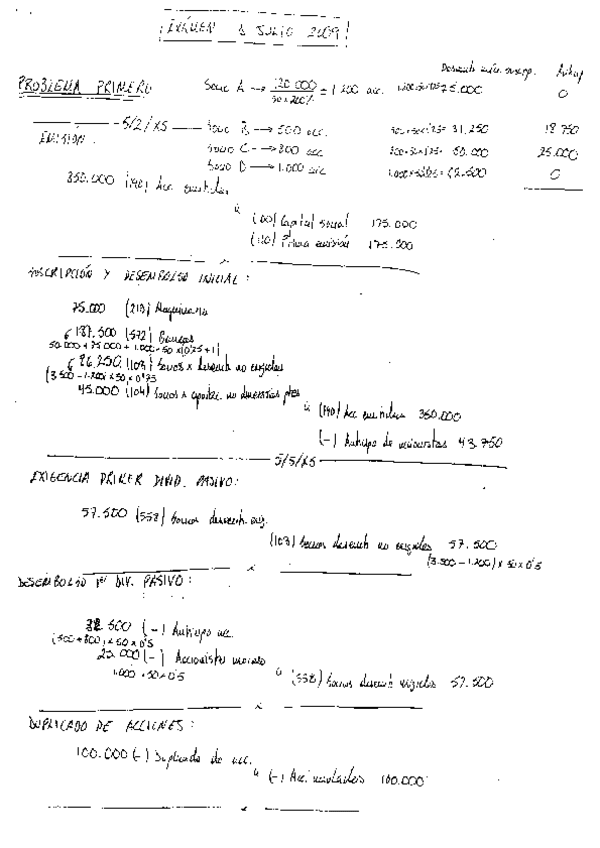 EXÁMEN 1 JULIO 2009
Desemb. Anticip
PROBLEMA PRIMERO Socio A → 120.000 / 50x200% = 1.200 acc. 75.000 0
5/2/X5 Socio B → 500 acc. 31.250 18.750
EMISIÓN: Socio C → 800 acc 50.000 25.000
Socio D → 1.000 acc 62.500 0
350.000 (190) Acc. emitidas
a
(100) Capital social 175.000
(110) Prima emisión 175.000
x
SUSCRIPCIÓN Y DESEMBOLSO INICIAL:
75.000 (213) Maquinaria
187.500 (572) Bancos
86.250 (103) Socios x desemb no exigidos
(3.500-1.200) x 50 x 0'75
45.000 (104) Socios x aportac. no dinerarias ptes
a (190) Acc emitidas 350.000
(-) Anticipo de accionistas 43.750
5/5/X5
EXIGENCIA PRIMER DIVID. PASIVO:
57.500 (558) Socios desemb. exig.
(103) Socios desemb no exigidos 57.500
(3.500-1.200) x 50 x 0'5
x
DESEMBOLSO 1er DIV. PASIVO:
32.500 (-) Anticipo acc.
(500+800) x 50 x 0'5
25.000 (-) Accionistas morosos
1.000 x 50 x 0'5
a (558) Socios desemb exigidos 57.500
x
DUPLICADO DE ACCIONES:
100.000 (-) Duplicado de acc.
a (-) Acc. anuladas 100.000
x